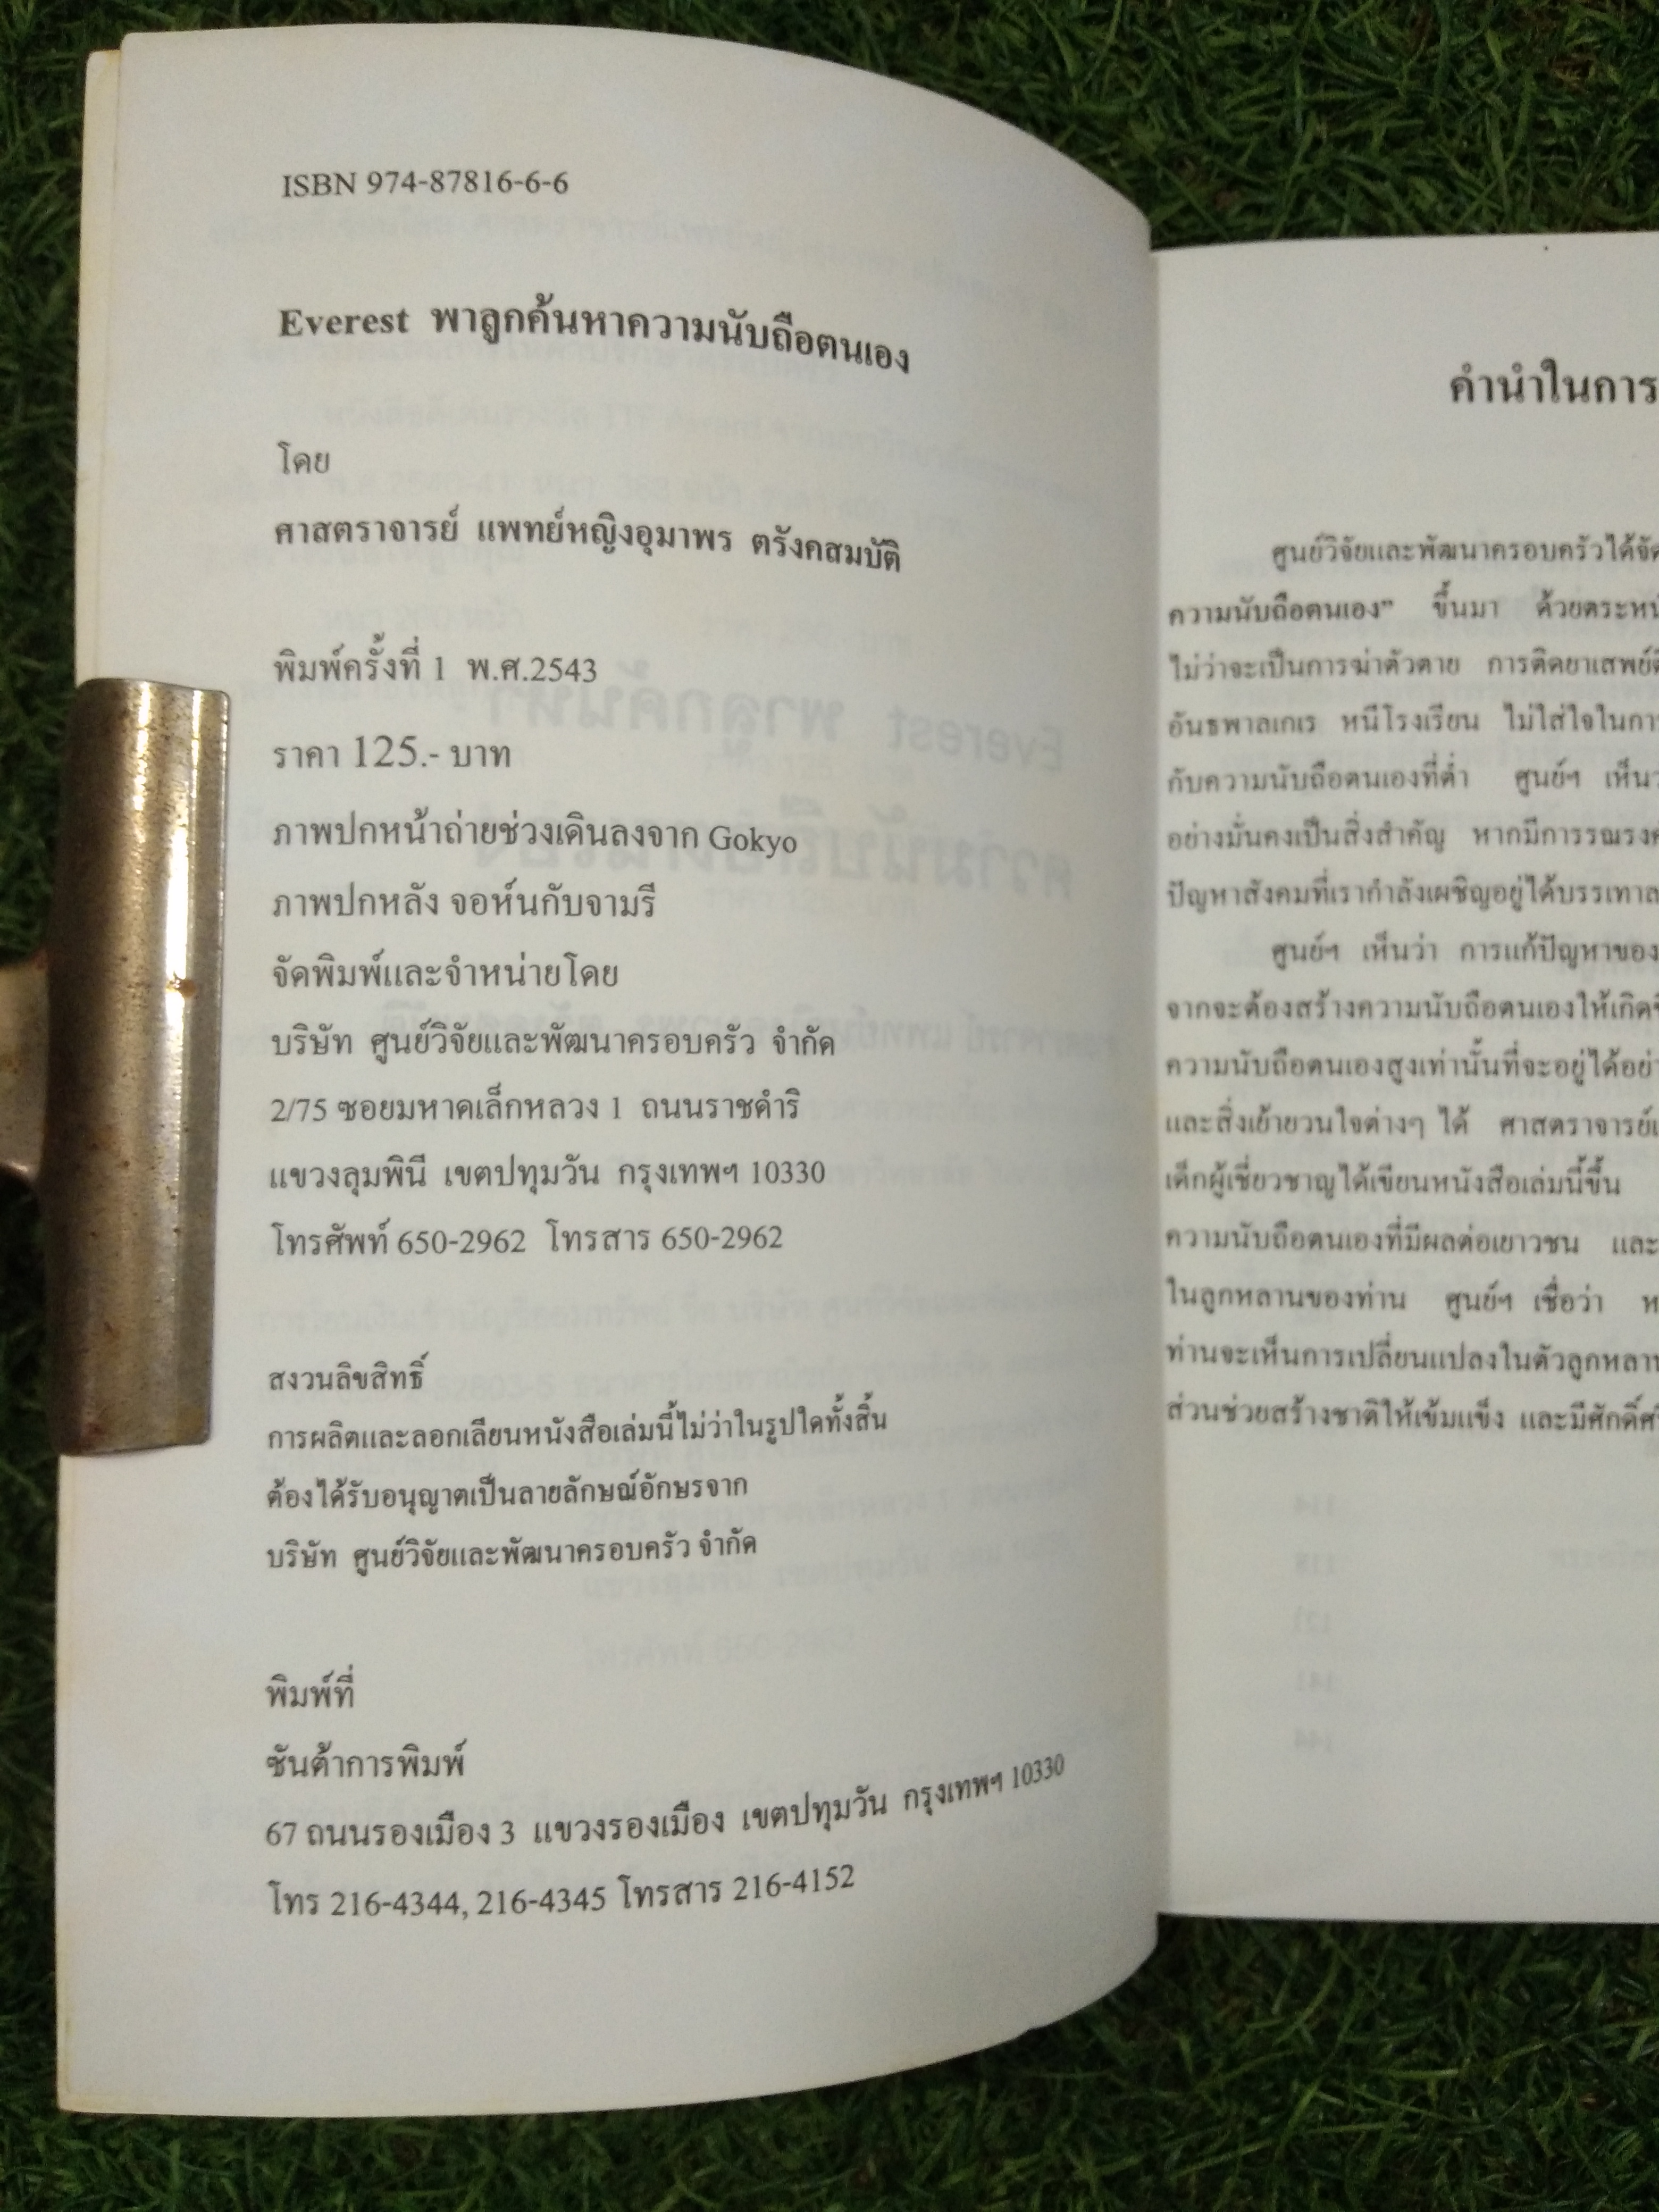 ISBN 974-87816-6-6
Everest พาลูกค้นหาความนับถือตนเอง
โดย
ศาสตราจารย์ แพทย์หญิงอุมาพร ตรังคสมบัติ
พิมพ์ครั้งที่ 1 พ.ศ.2543
ราคา 125.- บาท
ภาพปกหน้าถ่ายช่วงเดินลงจาก Gokyo
ภาพปกหลัง จอห์นกับจามรี
จัดพิมพ์และจำหน่ายโดย
บริษัท ศูนย์วิจัยและพัฒนาครอบครัว จำกัด
2/75 ซอยมหาดเล็กหลวง 1 ถนนราชดำริ
แขวงลุมพินี เขตปทุมวัน กรุงเทพฯ 10330
โทรศัพท์ 650-2962 โทรสาร 650-2962
สงวนลิขสิทธิ์
การผลิตและลอกเลียนหนังสือเล่มนี้ไม่ว่าในรูปใดทั้งสิ้น
ต้องได้รับอนุญาตเป็นลายลักษณ์อักษรจาก
บริษัท ศูนย์วิจัยและพัฒนาครอบครัว จำกัด
พิมพ์ที่
ซันต้าการพิมพ์
67 ถนนรองเมือง 3 แขวงรองเมือง เขตปทุมวัน กรุงเทพฯ 10330
โทร 216-4344, 216-4345 โทรสาร 216-4152
คำนำในการ
ศูนย์วิจัยและพัฒนาครอบครัวได้จัด
ความนับถือตนเอง” ขึ้นมา ด้วยตระหนั
ไม่ว่าจะเป็นการฆ่าตัวตาย การติดยาเสพย์ติ
อันธพาลเกเร หนีโรงเรียน ไม่ใส่ใจในกา
กับความนับถือตนเองที่ต่ำ ศูนย์ฯ เห็นว
อย่างมั่นคงเป็นสิ่งสำคัญ หากมีการรณรงค
ปัญหาสังคมที่เรากำลังเผชิญอยู่ได้บรรเทาล
ศูนย์ฯ เห็นว่า การแก้ปัญหาของ
จากจะต้องสร้างความนับถือตนเองให้เกิดขึ
ความนับถือตนเองสูงเท่านั้นที่จะอยู่ได้อย่า
และสิ่งเย้ายวนใจต่างๆ ได้ ศาสตราจารย์แ
เด็กผู้เชี่ยวชาญได้เขียนหนังสือเล่มนี้ขึ้น
ความนับถือตนเองที่มีผลต่อเยาวชน และ
ในลูกหลานของท่าน ศูนย์ฯ เชื่อว่า ห
ท่านจะเห็นการเปลี่ยนแปลงในตัวลูกหลาน
ส่วนช่วยสร้างชาติให้เข้มแข็ง และมีศักดิ์ศรี